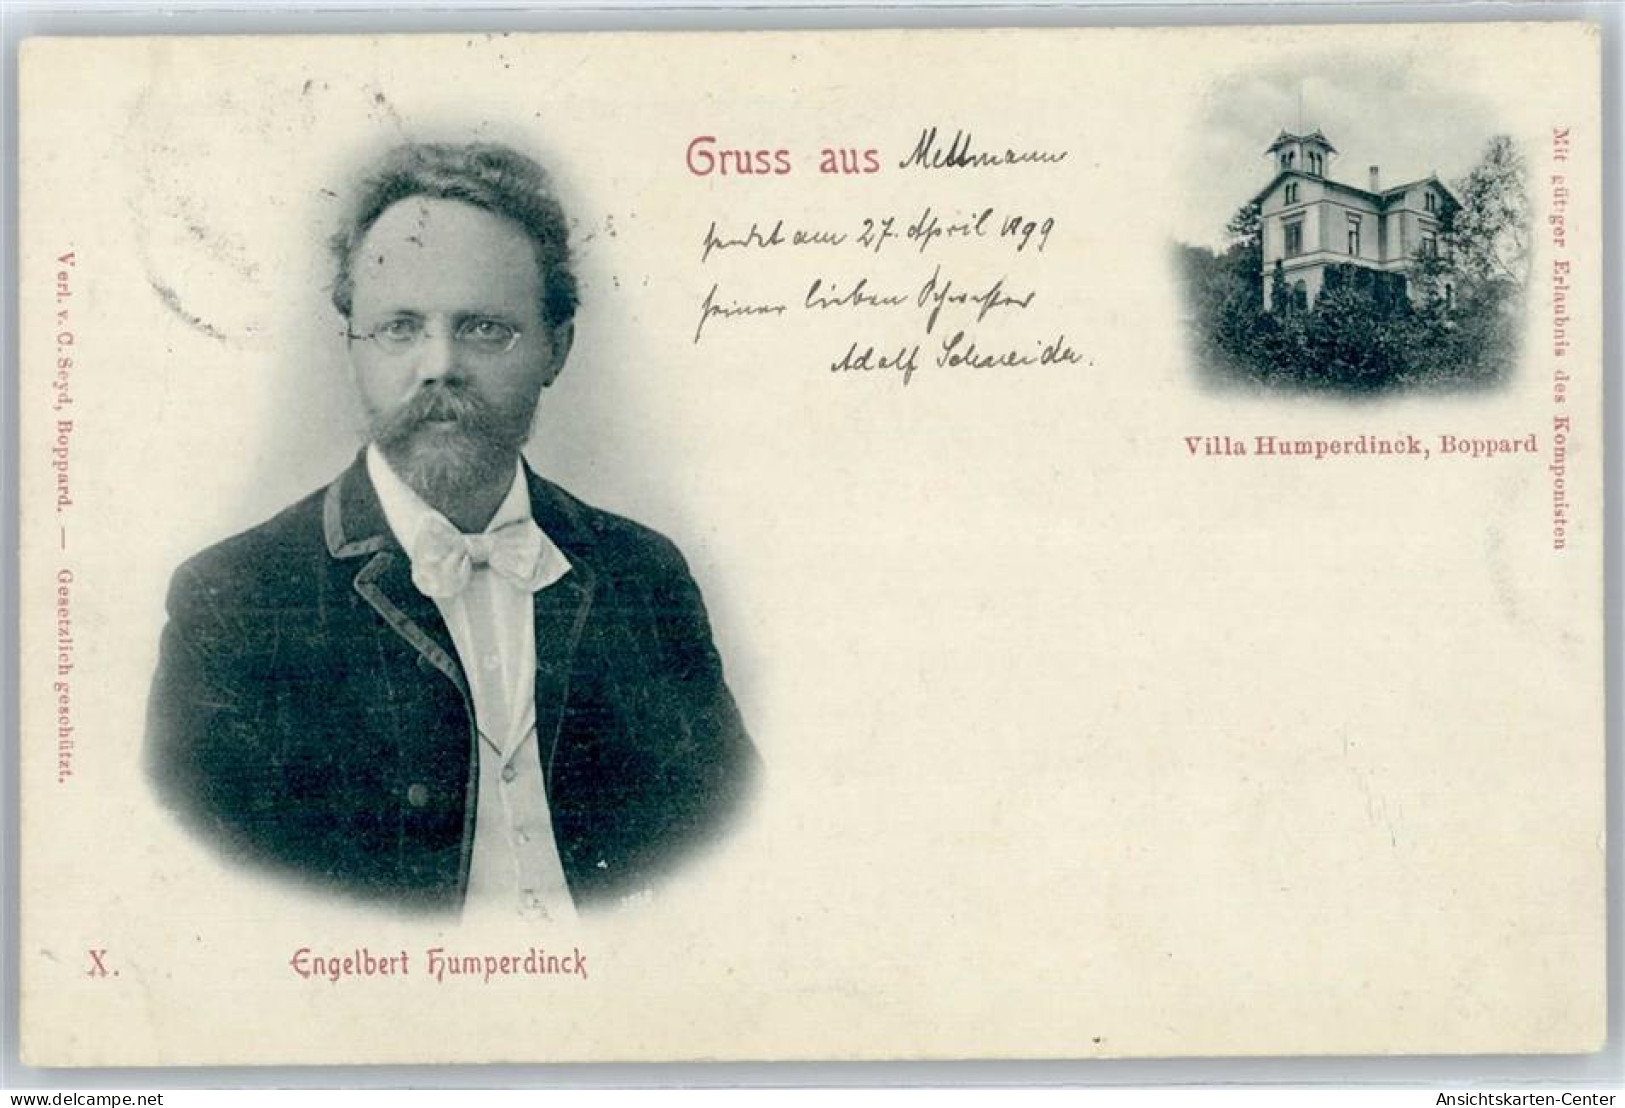 Gruss aus Mettmann
sendet am 27. April 1899
seiner lieben Schwester
Adolf Schneider.
Villa Humperdinck, Boppard
Mit gütiger Erlaubnis des Komponisten
Verl. v. C. Seyd, Boppard. — Gesetzlich geschützt.
X.
Engelbert Humperdinck
www.delcampe.net yo.com
Ansichtskarten-Center